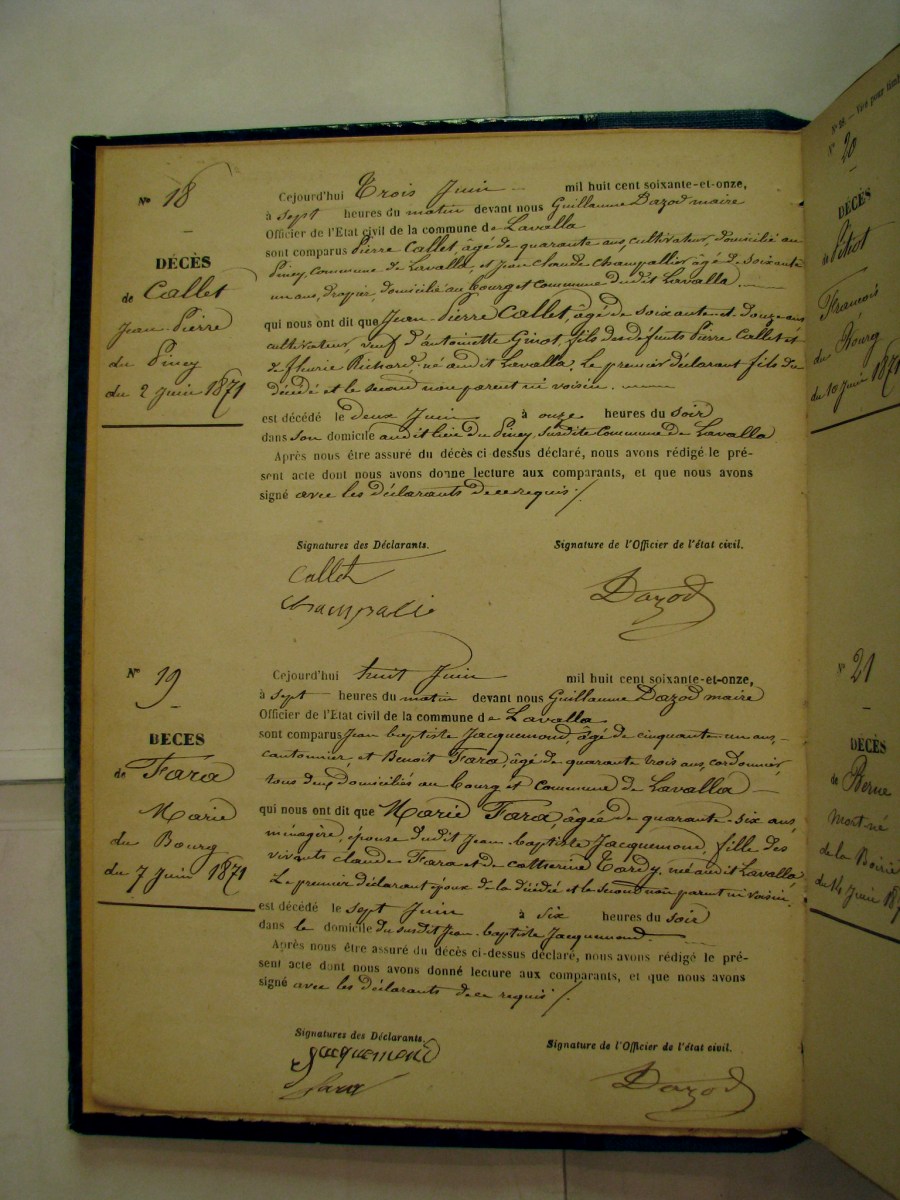 Nº 18
DÉCÈS
de Callet
Jean-Pierre
du Piney
du 2 Juin 1871
Cejourd'hui Trois Juin mil huit cent soixante-et-onze,
à sept heures du matin devant nous Guillaume Dazod maire
Officier de l'Etat civil de la commune de Lavalla
sont comparus Pierre Callet, âgé de quarante ans, cultivateur, domicilié au
Piney, commune de Lavalla, et Jean Claude Champallier âgé de soixante
un ans, drapier, domicilié au bourg et commune dudit Lavalla.
qui nous ont dit que Jean-Pierre Callet, âgé de soixante et douze ans
cultivateur, veuf d'antoinette Givot, fils des défunts Pierre Callet et
de Richard né audit Lavalla. Le premier déclarant fils du
décédé et le second non parent ni voisin.
est décédé le deux Juin à onze heures du soir
dans son domicile audit lieu du Piney, susdite commune de Lavalla
Après nous être assuré du décès ci-dessus déclaré, nous avons rédigé le pré-
sent acte dont nous avons donne lecture aux comparants, et que nous avons
signé avec les déclarants de ce requis /.
Signatures des Déclarants.
Signature de l'Officier de l'état civil.
Callet
Dazod
Nº 19
DECES
de Fara
Marie
du Bourg
du 7 Juin 1871
Cejourd'hui huit Juin mil huit cent soixante-et-onze,
à sept heures du matin devant nous Guillaume Dazod maire
Officier de l'Etat civil de la commune de Lavalla
sont comparus Jean baptiste Jacquemond, âgé de cinquante un ans,
cantonnier, et Benoit Fara, âgé de quarante trois ans, cordonnier,
tous deux domiciliés au bourg et commune de Lavalla
qui nous ont dit que Marie Fara, âgée de quarante-six ans,
ménagère, épouse dudit Jean baptiste Jacquemond, fille des
vivants claude Fara et de catherine Tardy, né audit Lavalla,
Le premier déclarant époux de la décédée et le second non parent ni voisin.
est décédé le sept Juin à six heures du soir
dans le domicile du susdit Jean-baptiste Jacquemond.
Après nous être assuré du décès ci-dessus déclaré, nous avons rédigé le pré-
sent acte dont nous avons donné lecture aux comparants, et que nous avons
signé avec les déclarants de ce requis /.
Signatures des Déclarants.
Signature de l'Officier de l'état civil.
Jacquemond
Fara
Dazod
Nº 18. — Visé pour timb
Nº 20
DÉCÈS
de
François
du Bourg
du 10 Juin 1871
Nº 21
DÉCÈS
de Berne
mort-né
de la
du 14 Juin 18